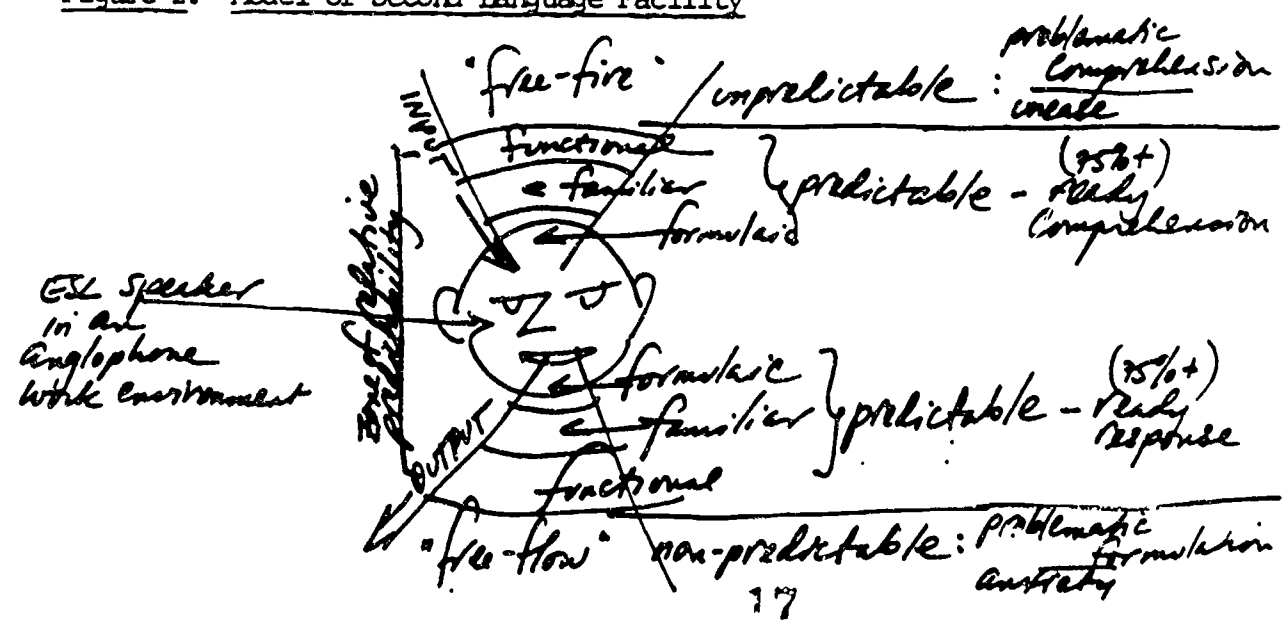 Model of Second Language Facility
"free-fire"
unpredictable : problematic
comprehension
unease
INPUT
functional
familiar
formulaic
predictable - (75%+)
ready
comprehension
Zone of relative
predictability
ESL speaker
in an
anglophone
work environment
formulaic
familiar
functional
predictable - (75%+)
ready
response
OUTPUT
"free-flow"
non-predictable : problematic
formulation
anxiety
17